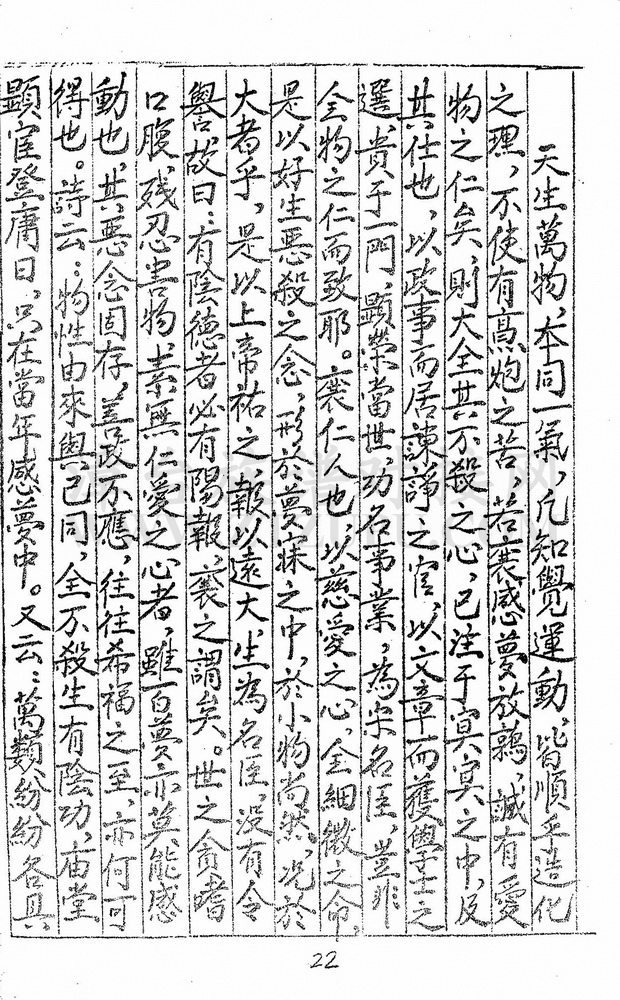 天生萬物，本同一氣，凡知覺運動。皆順乎造化
之理，不使有烹炮之苦，若襄感夢放鶉，誠有愛
物之仁矣，則大全其不殺之心，已注于冥冥之中，及
其仕也，以政事而居諫諍之官，以文章而獲學士之
選，貴于一門，顯榮當世，功名事業，為宋名臣，豈非
全物之仁而致耶。襄仁人也，以慈愛之心，全細微之命，
是以好生惡殺之念，形於夢寐之中，於小物尚然，况於
大者乎，是以上帝祐之，報以遠大，生為名臣，没有令
譽，故曰：有陰德者必有陽報，襄之謂矣。世之貪嗜
口腹，残忍害物，素無仁愛之心者，雖百夢亦莫能感
動也，其惡念固存，善政不應，往往希福之至，亦何可
得也。詩云：物性由來與己同，全不殺生有陰功，庙堂
顕宦登庸日，只在當年感夢中。又云：萬類紛紛各具
22